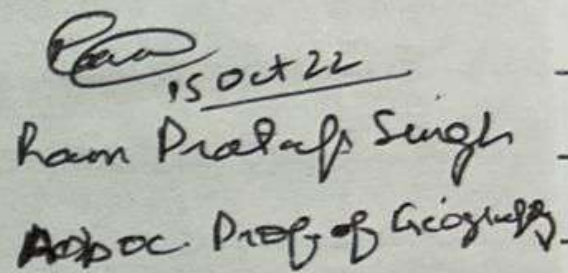 15 Oct 22
Ram Pratap Singh
Assoc. Prof. of Geography